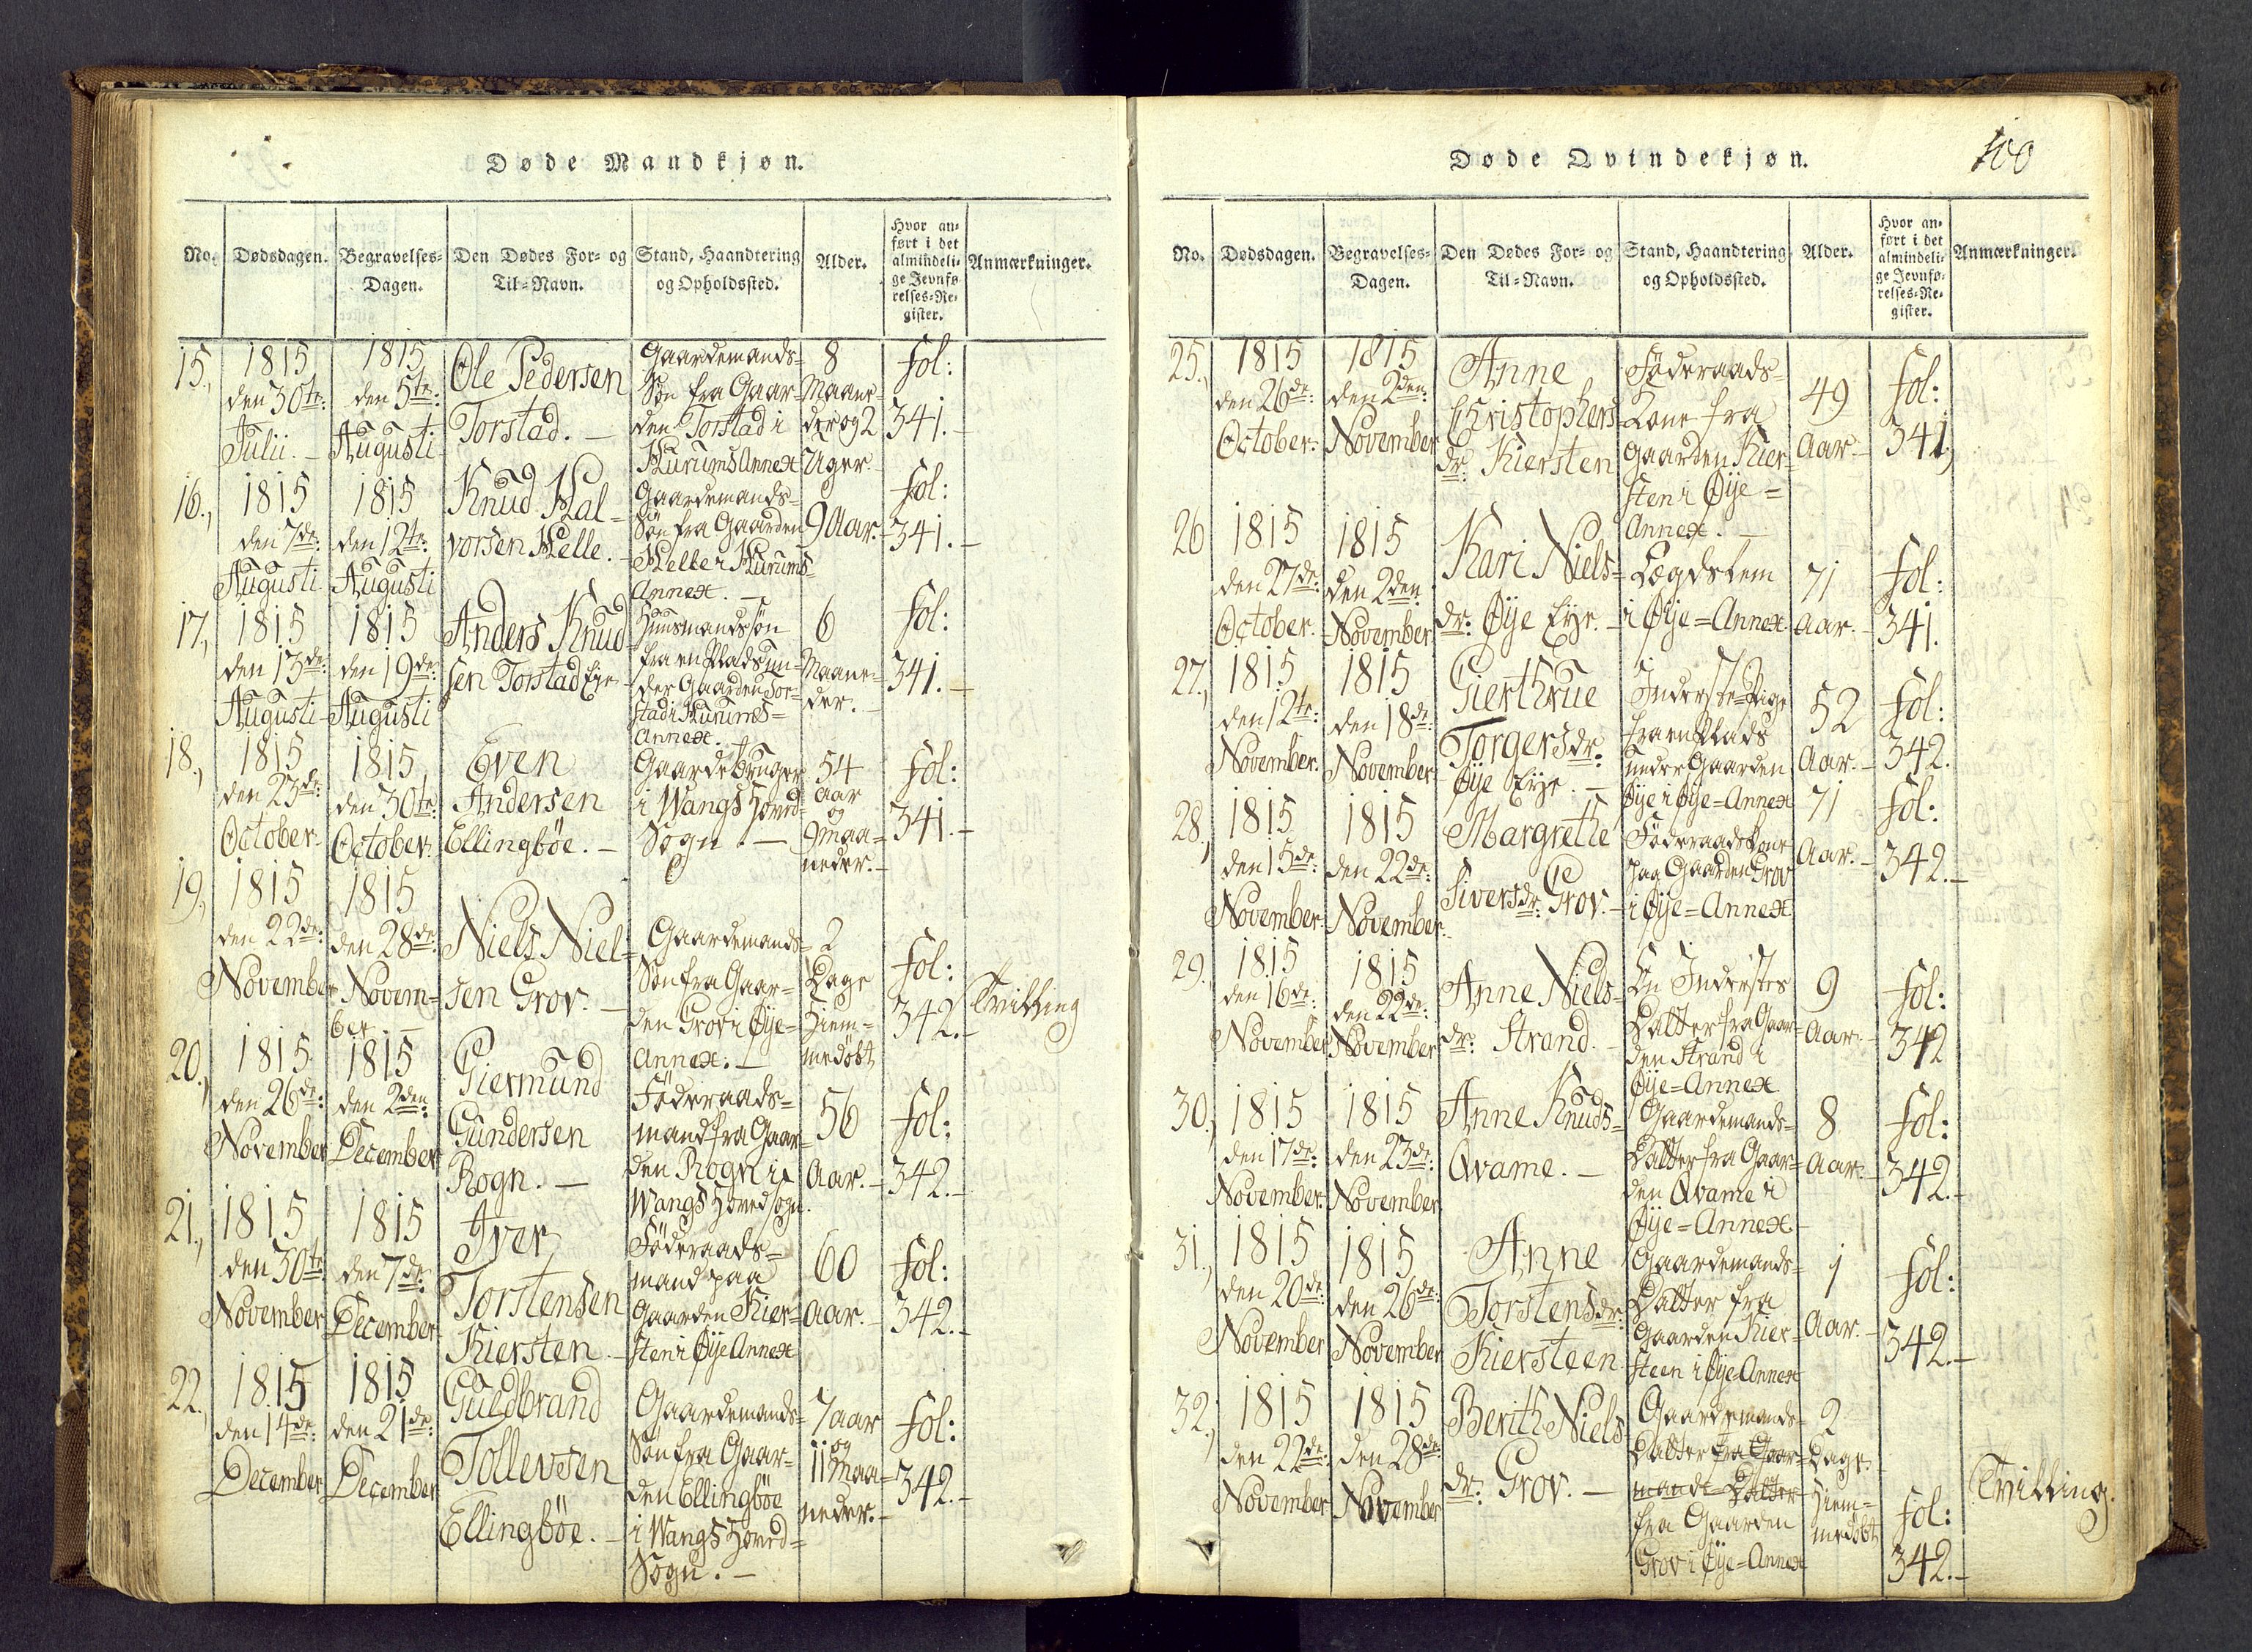 Døde Mandkjøn.
No.
Dødsdagen.
Begravelses-
Dagen.
Den Dødes For- og
Til-Navn.
Stand, Haandtering
og Opholdssted.
Alder.
Hvor an-
ført i det
almindeli-
ge Jevnfø-
relses-Re-
gister.
Anmærkninger.
15.,
1815
den 30te:
Julii. –
1815
den 5te:
Augusti
Ole Pedersen
Torstad. –
Gaardemands-
Søn fra Gaar-
den Torstad i
Hurums Annex
8
Maane-
der og 2
Uger.
fol:
341. –
16.,
1815
den 7de:
Augusti.
1815
den 12te:
Augusti
Knud Hal-
vorsen Helle. –
Gaardemands-
Søn fra Gaarden
Helle i Hurums-
Annex. –
9 Aar. –
fol:
341. –
17.,
1815
den 13de:
Augusti –
1815
den 19de:
Augusti
Anders Knud
sen Torstad Eje
Huusmandssøn
fra en Plads un-
der Gaarden Tor-
stad i Hurums-
Annex. –
6
Maane-
der. –
fol:
341. –
18.,
1815
den 23de:
October.
1815
den 30te:
October.
Even
Andersen
Ellingbøe. –
Gaardebruger
i Wangs Hoved-
Sogn. –
54
Aar
og
9 Maa-
neder. –
fol:
341. –
19.,
1815
den 22de:
November
1815
den 28de:
Novem-
ber. –
Niels Niel-
sen Grov. –
Gaardemands-
Søn fra Gaar-
den Grov i Øye-
Annex. –
2
Dage
Hiem-
medøbt
fol:
342. –
Tvilling
20.,
1815
den 26de:
November
1815
den 2den:
December
Giermund
Gundersen
Rogn. –
Föderaads-
mand fra Gaar-
den Rogn i
Wangs Hovedsogn.
56
Aar. –
fol:
342. –
21.,
1815
den 30te:
November
1815
den 7de:
December
Iver
Torstensen
Kiersten. –
Föderaads-
mand paa
Gaarden Kier-
sten i Øye Annex
60
Aar. –
fol:
342. –
22.,
1815
den 14de:
December
1815
den 21de:
December
Guldbrand
Tollevsen
Ellingbøe. –
Gaardemands-
Søn fra Gaar-
den Ellingbøe
i Wangs Hoved-
Sogn. –
7 Aar
og
11 Maa-
neder. –
fol:
342. –
Døde Qvindekjøn.
100
No.
Dødsdagen.
Begravelses-
Dagen.
Den Dødes For- og
Til-Navn.
Stand, Haandtering
og Opholdssted.
Alder.
Hvor an-
ført i det
almindeli-
ge Jevnfø-
relses-Re-
gister.
Anmærkninger.
25.,
1815
den 26de:
October.
1815
den 2den:
November
Anne
Christophers-
dr: Kiersten
Föderaads-
Kone fra
Gaarden Kier-
sten i Øye-
Annex. –
49
Aar. –
fol:
341.,
26
1815
den 27de:
October.
1815
den 2den:
November
Kari Niels-
dr: Øye Eye. –
Lægdslem
i Øye-Annex
71
Aar. –
fol:
341.
27.,
1815
den 12te:
November.
1815
den 18de:
November
Gierthrue
Torgersdr:
Øye Eye. –
Inderste-Pige
fra en Plads
under Gaarden
Øye i Øye-Annex
52
Aar. –
fol:
342.
28.,
1815
den 15de:
November.
1815
den 22de:
November.
Margrethe
Siversdr: Grov. –
Föderaadskone
paa Gaarden Grov
i Øye-Annex
71
Aar. –
fol:
342. –
29.,
1815
den 16de:
November
1815
den 22de:
November
Anne Niels-
dr: Strand. –
En Inderstes
Datter fra Gaar-
den Strand i
Øye-Annex
9
Aar. –
fol:
342
30.,
1815
den 17de:
November.
1815
den 23de:
November
Anne Knuds-
Qvame. –
Gaardemands-
Datter fra Gaar-
den Qvame i
Øye-Annex
8
Aar. –
fol:
342. –
31.,
1815
den 20de:
November
1815
den 26de:
November
Anne
Torstensdr:
Kiersteen
Gaardemands-
Datter fra
Gaarden Kier-
steen i Øye-Annex
1
Aar. –
fol:
342. –
32.,
1815
den 22de:
November
1815
den 28de:
November
Berith Niels
dr: Grov. –
Gaardemands-
Datter fra Gaar-
mands-Datter
fra Gaarden
Grov i Øye-Annex
2
Dage.
Hiem-
medøbt
fol:
342. –
Tvilling.